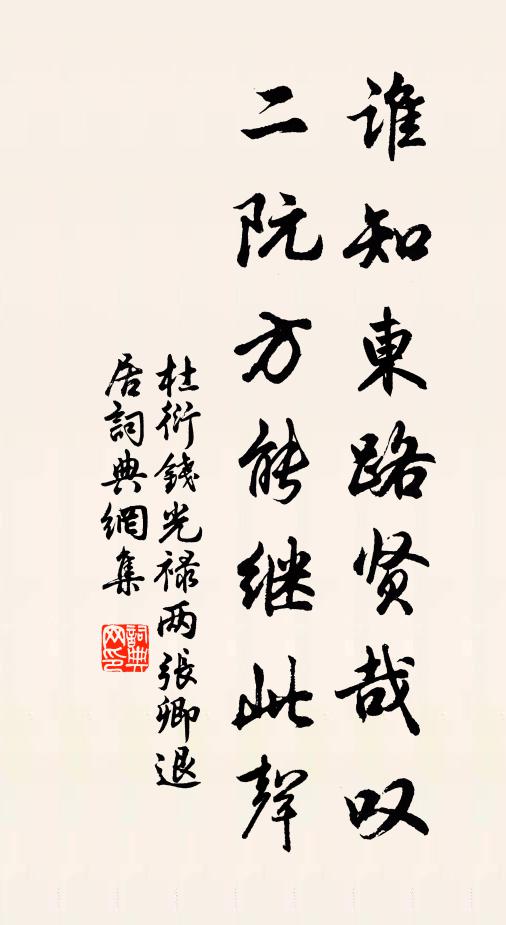 谁知東路贤哉叹
二阮方能继此聲
杜衍錢光禄两張卿退
居詞典網集
詞典网印